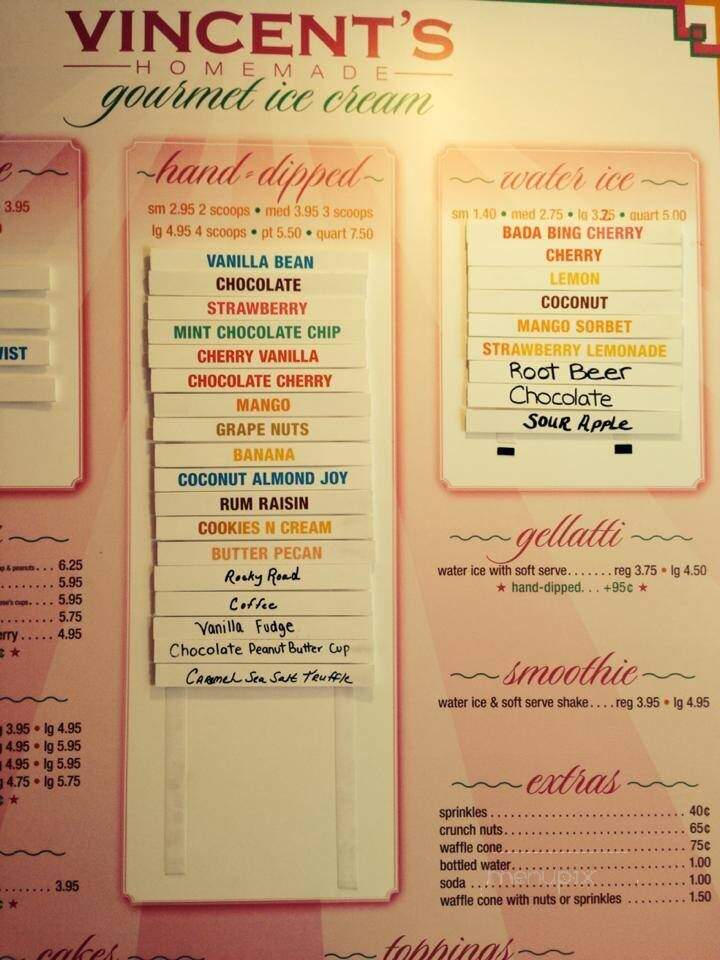 VINCENT'S
HOMEMADE
gourmet ice cream
3.95
IST
6.25
5.95
5.95
5.75
4.95
3.95 • lg 4.95
4.95 • lg 5.95
4.95 • lg 5.95
4.75 • lg 5.75
3.95
cakes
~hand-dipped~
sm 2.95 2 scoops • med 3.95 3 scoops
lg 4.95 4 scoops • pt 5.50 • quart 7.50
VANILLA BEAN
CHOCOLATE
STRAWBERRY
MINT CHOCOLATE CHIP
CHERRY VANILLA
CHOCOLATE CHERRY
MANGO
GRAPE NUTS
BANANA
COCONUT ALMOND JOY
RUM RAISIN
COOKIES N CREAM
BUTTER PECAN
Rocky Road
Coffee
Vanilla Fudge
Chocolate Peanut Butter Cup
Caramel Sea Salt Truffle
water ice
sm 1.40 • med 2.75 • lg 3.25 • quart 5.00
BADA BING CHERRY
CHERRY
LEMON
COCONUT
MANGO SORBET
STRAWBERRY LEMONADE
Root Beer
Chocolate
SOUR APPLE
gellatti
water ice with soft serve.......reg 3.75 • lg 4.50
★ hand-dipped. . . +95¢ ★
smoothie
water ice & soft serve shake....reg 3.95 • lg 4.95
extras
sprinkles........40¢
crunch nuts........65¢
waffle cone........75¢
bottled water........1.00
soda........1.00
waffle cone with nuts or sprinkles........1.50
menupix
toppings